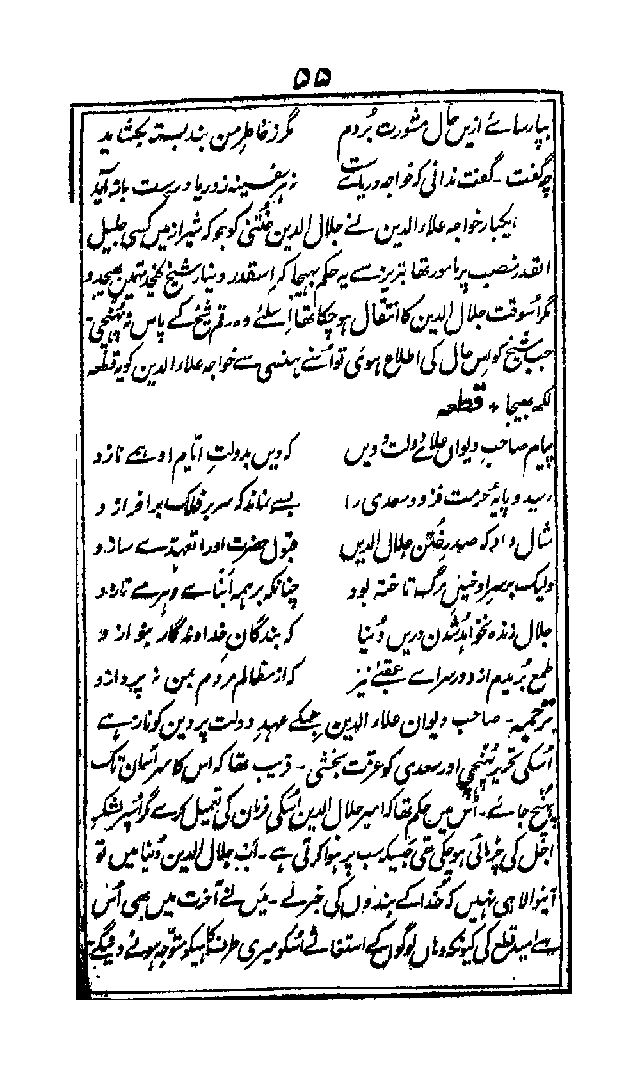 ۵۵
بپارسائے ازیں حال مشورت بُردم مگر ز خاطرِ من بند بستہ بکشاید
چہ گفت - گفت ندانی کہ خواجہ دریاست نہ ہر سفینہ ز دریا درست باز آید
ایکبار خواجہ علاء الدین نے جلال الدین خُتنی کو جو کہ شیراز میں کسی جلیل
القدر منصب پر مامور تھا تبریز سے یہ حکم بھیجا کہ اسقدر دینار شیخ کیخدمتمیں بھیجدو
مگر اُسوقت جلال الدین کا انتقال ہو چکا تھا اِسلئے وہ رقم شیخ کے پاس نہ پُہنچی-
جب شیخ کو اِس حال کی اطلاع ہوئی تو اُسنے ہنسی سے خواجہ علاء الدین کو یہ قطعہ
لکھ بھیجا + قطعہ
پیام صاحبِ دیوان علائے دولت و دیں کہ دیں بدولتِ ایّام او ہمے نازد
رسید و پایۂ حرمت فزود سعدی را بسے نماند کہ سر بر فلک برافرازد
مثال داد کہ صدرِ خُتن جلال الدیں قبول حضرت اورا تعہدے سازد
ولیک بر سرِ او خیلِ مرگ تاختہ بود چنانکہ بر ہمہ اَبنائے دہر مے تازد
جلال زندہ نخواہد شُدن دریں دُنیا کہ بندگانِ خداوندگار بنوازد
طمع بُریدم ازو در سرائے عقبےٰ نیز کہ از مظالمِ مردُم بمن نہ پردازد
ترجمہ- صاحب دیوان علاء الدین جسکے عہدِ دولت پر دین کو ناز ہے
اُسکی تحریر پُہنچی اور سعدی کو عزت بخشی - قریب تھا کہ اُس کا سر آسمان تک
پہنچ جائے - اُس میں حکم تھا کہ امیر جلال الدین اُسکی فرمان کی تعمیل کرے مگر اُسپر لشکرِ
اجل کی چڑھائی ہو چکی تھی جیسیکہ سب پر ہوا کرتی ہے - اب جلال الدین دُنیا میں تو
آنیوالا ہی نہیں کہ خُدا کے بندوں کی خبر لے - میں نے آخرت میں بھی اُس
سے اُمید قطع کی کیونکہ وہاں لوگوں کے استغاثے اُسکو میری طرف کاہیکو متوجہ ہونے دینگے-